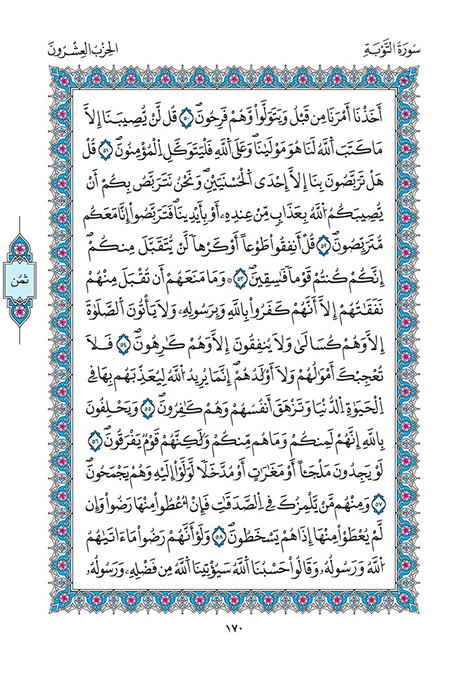 سُورَةُ التَّوْبَةِ
الحِزْبُ العِشْرُونَ
أَخَذْنَا أَمْرَنَا مِن قَبْلُ وَيَتَوَلَّوا۟ وَّهُمْ فَرِحُونَ ۝٥٠ قُل لَّنْ يُّصِيبَنَا إِلَّا
مَا كَتَبَ اَ۬للَّهُ لَنَا هُوَ مَوْلَىٰنَا وَعَلَى اَ۬للَّهِ فَلْيَتَوَكَّلِ اِ۬لْمُؤْمِنُونَ ۝٥١ قُلْ
هَلْ تَرَبَّصُونَ بِنَا إِلَّا إِحْدَى اَ۬لْحُسْنَيَيْنِ وَنَحْنُ نَتَرَبَّصُ بِكُمْ أَنْ
يُّصِيبَكُمُ اُ۬للَّهُ بِعَذَابٍ مِّنْ عِندِهِۦ أَوْ بِأَيْدِينَا فَتَرَبَّصُوا۟ إِنَّا مَعَكُم
مُّتَرَبِّصُونَ ۝٥٢ قُلْ أَنفِقُوا۟ طَوْعاً أَوْ كَرْهاً لَّنْ يُّتَقَبَّلَ مِنكُمْ
إِنَّكُمْ كُنتُمْ قَوْماً فَٰسِقِينَ ۝٥٣ ۞ وَمَا مَنَعَهُمْ أَن تُقْبَلَ مِنْهُمْ
نَفَقَٰتُهُمْ إِلَّا أَنَّهُمْ كَفَرُوا۟ بِاللَّهِ وَبِرَسُولِهِۦ وَلَا يَأْتُونَ اَ۬لصَّلَوٰةَ
إِلَّا وَهُمْ كُسَالَىٰ وَلَا يُنفِقُونَ إِلَّا وَهُمْ كَٰرِهُونَ ۝٥٤ فَلَا
تُعْجِبْكَ أَمْوَٰلُهُمْ وَلَا أَوْلَٰدُهُمْ إِنَّمَا يُرِيدُ اُ۬للَّهُ لِيُعَذِّبَهُم بِهَا فِي
اِ۬لْحَيَوٰةِ اِ۬لدُّنْيَا وَتَزْهَقَ أَنفُسُهُمْ وَهُمْ كَٰفِرُونَ ۝٥٥ وَيَحْلِفُونَ
بِاللَّهِ إِنَّهُمْ لَمِنكُمْ وَمَا هُم مِّنكُمْ وَلَٰكِنَّهُمْ قَوْمٌ يَفْرَقُونَ ۝٥٦
لَوْ يَجِدُونَ مَلْجَـًٔا أَوْ مَغَٰرَٰتٍ أَوْ مُدَّخَلاً لَّوَلَّوِا۟ اِلَيْهِ وَهُمْ يَجْمَحُونَ
۝٥٧ وَمِنْهُم مَّنْ يَّلْمِزُكَ فِي اِ۬لصَّدَقَٰتِ فَإِنْ أُعْطُوا۟ مِنْهَا رَضُوا۟ وَإِن
لَّمْ يُعْطَوْا۟ مِنْهَا إِذَا هُمْ يَسْخَطُونَ ۝٥٨ وَلَوْ أَنَّهُمْ رَضُوا۟ مَا ءَاتَىٰهُمُ
اُ۬للَّهُ وَرَسُولُهُۥ وَقَالُوا۟ حَسْبُنَا اَ۬للَّهُ سَيُؤْتِينَا اَ۬للَّهُ مِن فَضْلِهِۦ وَرَسُولُهُۥ
ثُمُن
١٧٠